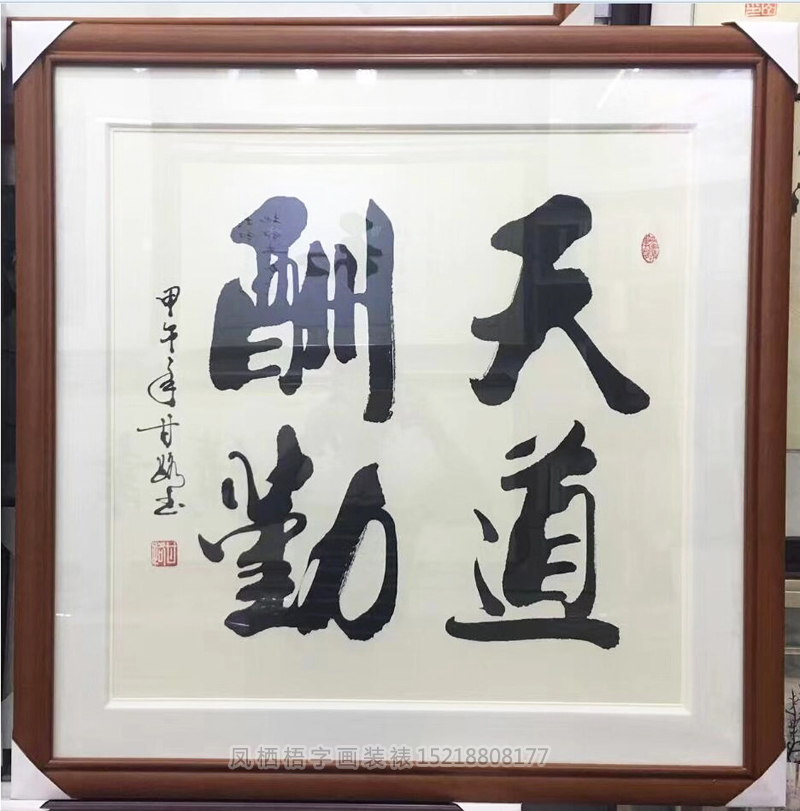 天道
酬勤
甲午年甘路书
凤栖梧字画装裱15218808177